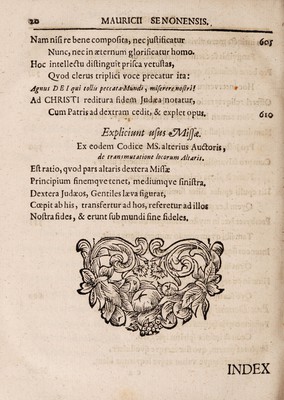 20 MAURICII SENONENSIS.
Nam nisi re bene composita, nec justificatur 605
Nunc, nec in æternum glorificatur homo.
Hoc intellectu distinguit prisca vetustas,
Quod clerus triplici voce precatur ita:
Agnus DEI qui tollis peccata Mundi, miserere nostri!
Ad CHRISTI reditura fidem Judæa notatur,
Cum Patris ad dextram cedit, & explet opus. 610
Expliciunt usus Missæ.
Ex eodem Codice MS. alterius Auctoris,
de transmutatione locorum Altaris.
Est ratio, quod pars altaris dextera Missæ
Principium finemque tenet, mediumque sinistra.
Dextera Judæos, Gentiles læva figurat,
Cœpit ab his, transfertur ad hos, referetur ad illos
Nostra fides, & erunt sub mundi fine fideles.
INDEX